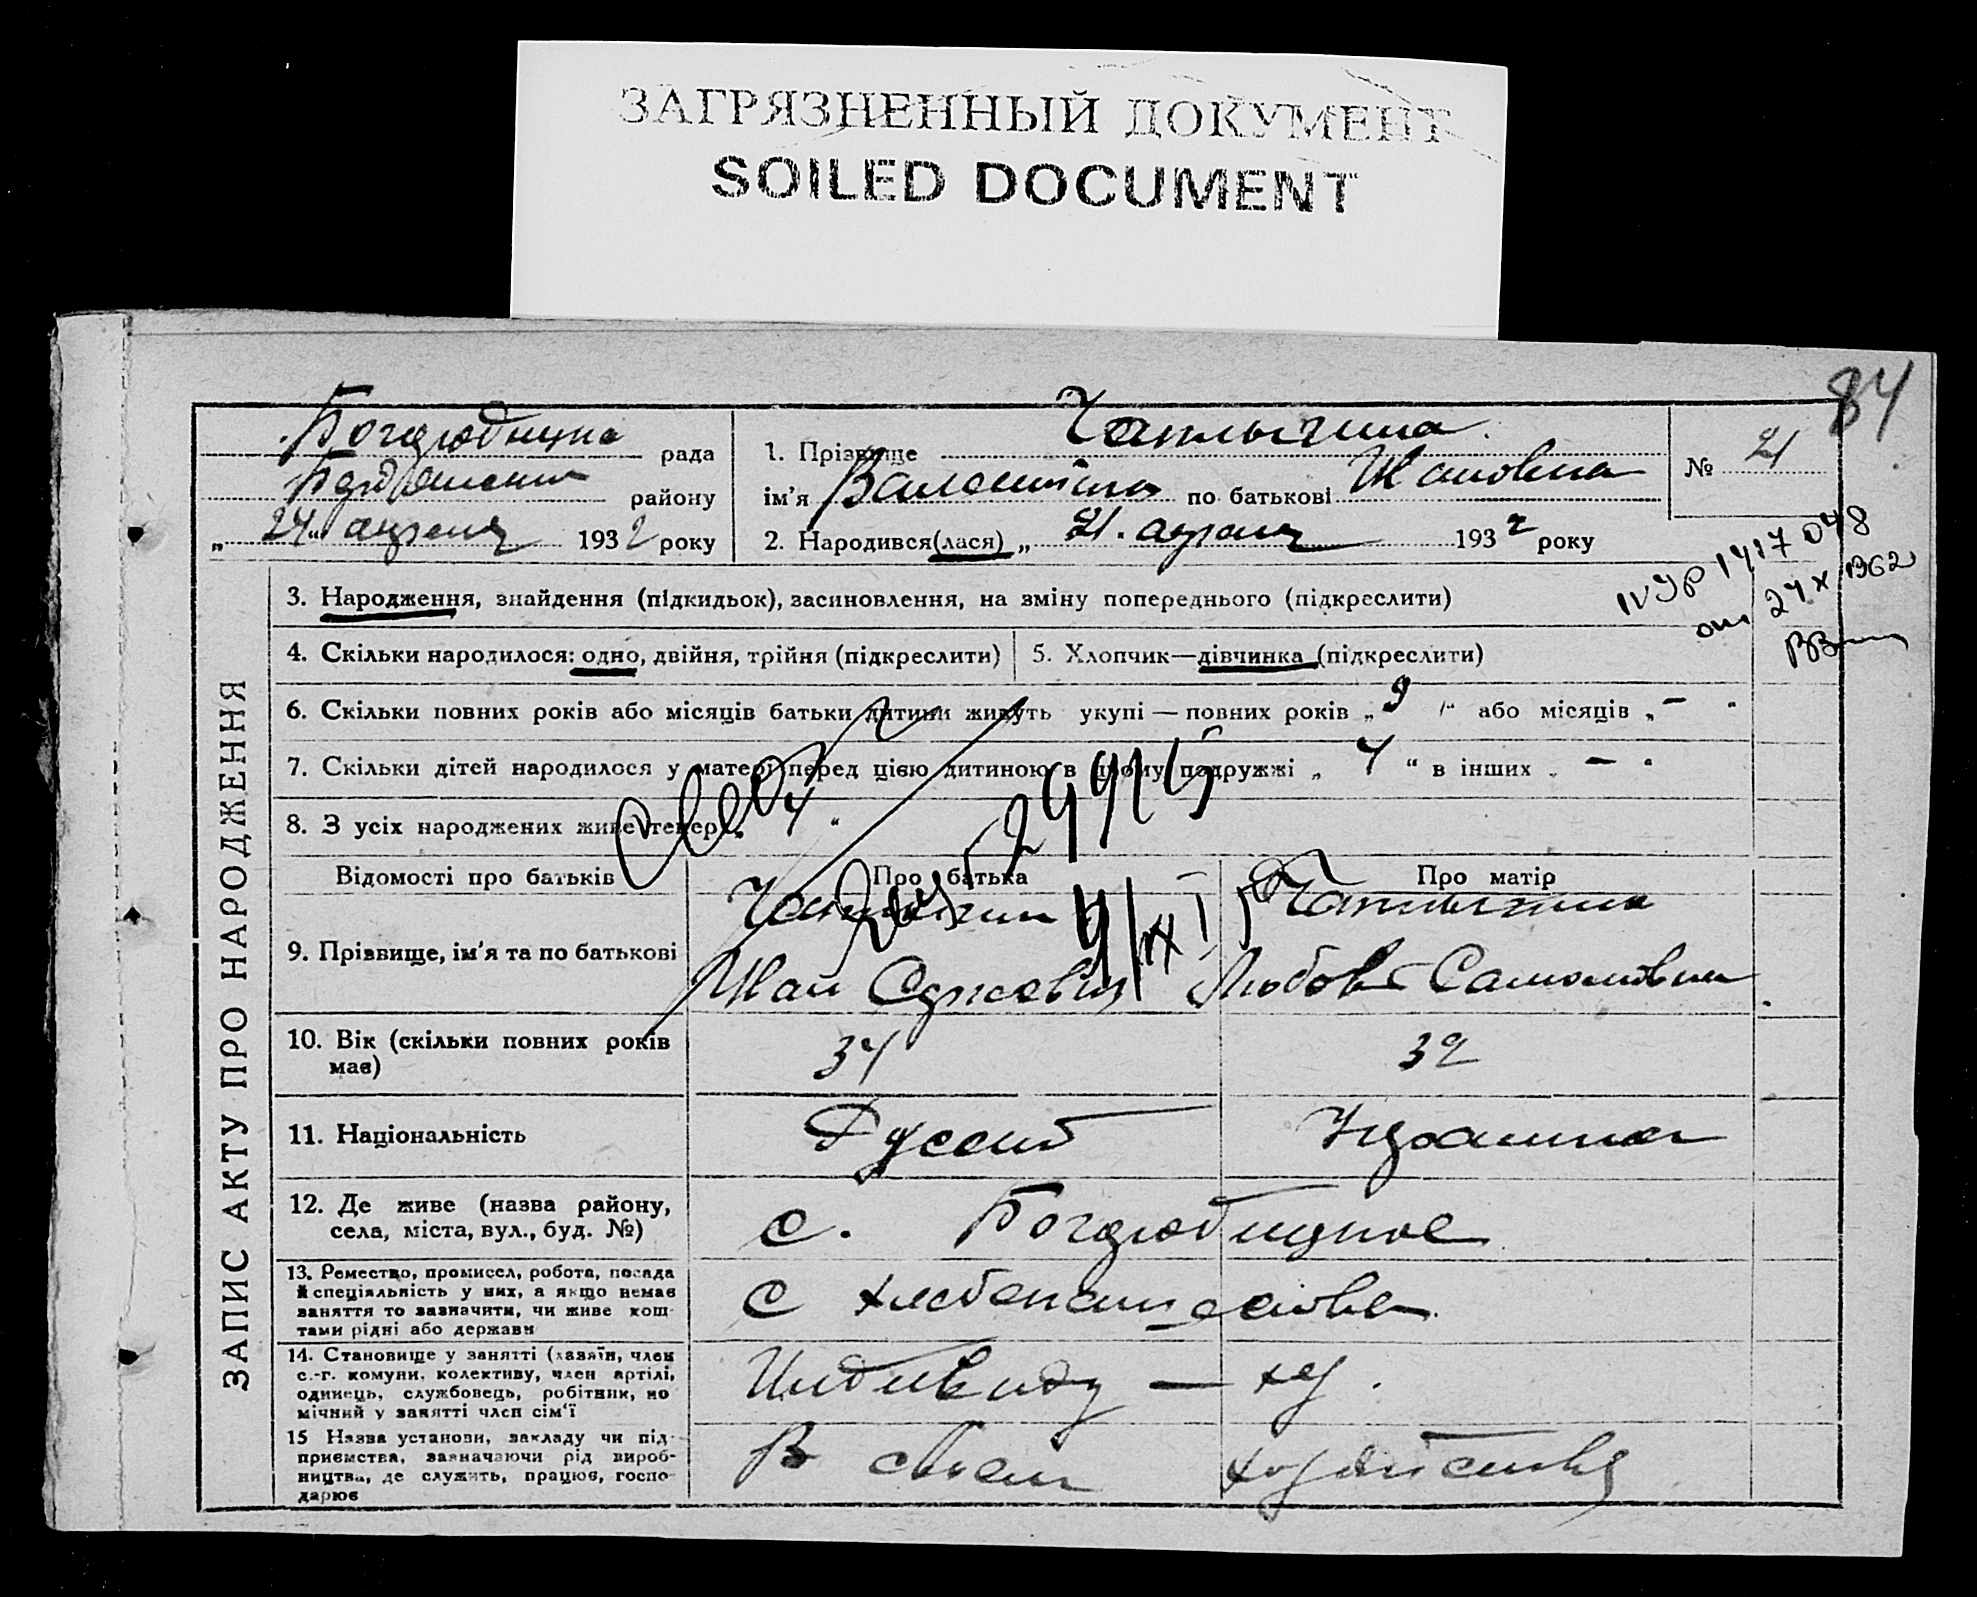 ЗАГРЯЗНЕННЫЙ ДОКУМЕНТ
SOILED DOCUMENT
84
рада
району
„24“ апреля 1932 року
1. Прізвище Чаплыгина
ім'я Валентина по батькові Ивановна
2. Народився(лася) „21. апреля 1932 року
№ 21
IV УР 1417048
от 24 X 1962
ЗАПИС АКТУ ПРО НАРОДЖЕННЯ
3. Народження, знайдення (підкидьок), засиновлення, на зміну попереднього (підкреслити)
4. Скільки народилося: одно, двійня, трійня (підкреслити)
5. Хлопчик—дівчинка (підкреслити)
6. Скільки повних років або місяців батьки дитини живуть укупі — повних років „9“ або місяців „–“
7. Скільки дітей народилося у матері перед цією дитиною в цьому подружжі „4“ в інших „–“
8. З усіх народжених живе тепер „4“
Відомості про батьків
Про батька
Про матір
9. Прізвище, ім'я та по батькові
Чаплыгин
Иван
Чаплыгина
Любовь
10. Вік (скільки повних років має)
34
32
11. Національність
Русский
Украинка
12. Де живе (назва району, села, міста, вул., буд. №)
с.
13. Ремество, промисел, робота, посада й спеціяльність у них, а якщо немає заняття то зазначити, чи живе коштами рідні або держави
С хлебопашества
14. Становище у занятті (хазяїн, член с.-г. комуни, колективу, член артілі, одинець, службовець, робітник, помічний у занятті член сім'ї
Индивиду — х-у.
15 Назва установи, закладу чи підприємства, зазначаючи рід виробництва, де служить, працює, господарює
В своем хозяйстве